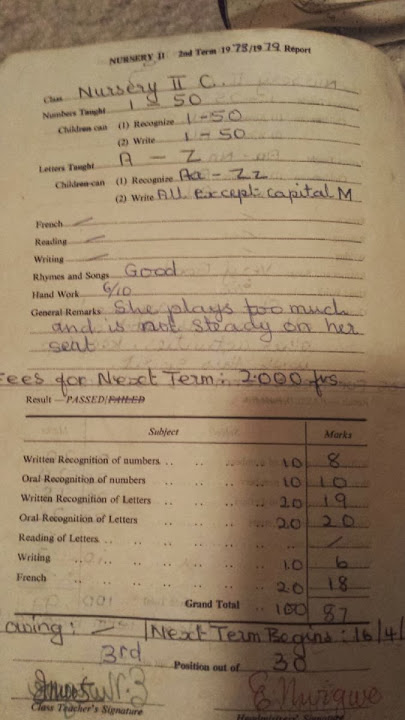 NURSERY II 2nd Term 1978/1979 Report
Class Nursery II C.
Numbers Taught 1 - 50
Children can (1) Recognize 1-50
(2) Write 1 - 50
Letters Taught A - Z
Children can (1) Recognize Aa - Zz
(2) Write All except capital M
French
Reading
Writing
Rhymes and Songs Good
Hand Work 6/10
General Remarks She plays too much
and is not steady on her
seat
Fees for Next Term: 2.000 frs
Result — PASSED/FAILED
Subject Marks
Written Recognition of numbers .. .. .. .. 10 8
Oral Recognition of numbers .. .. .. .. 10 10
Written Recognition of Letters .. .. .. .. 20 19
Oral Recognition of Letters .. .. .. .. 20 20
Reading of Letters .. .. .. .. ..
Writing .. .. .. .. .. 10 6
French .. .. .. .. .. 20 18
Grand Total .. 100 87
Next Term Begins: 16/4/
3rd Position out of 30
Class Teacher's Signature